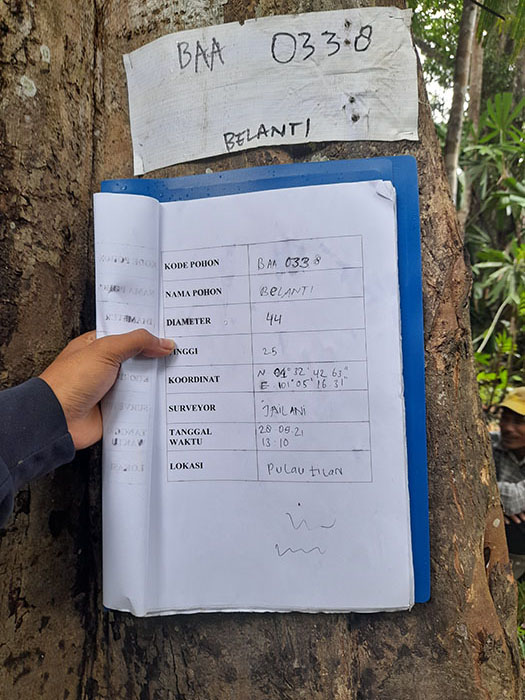 BAA 033.8
BELANTI
KODE POHON BAA 033.8
NAMA POHON BELANTI
DIAMETER 44
TINGGI 25
KOORDINAT N. 01° 32' 42 63"
E. 101° 05' 16 31"
SURVEYOR JAILANI
TANGGAL WAKTU 28.08.21
13:10
LOKASI Pulau tilan